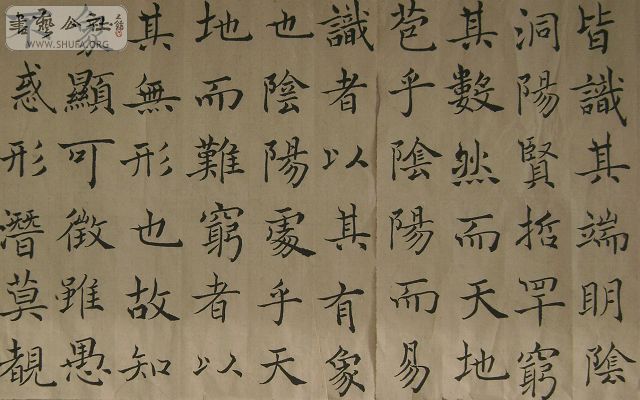 皆識其端明陰
洞陽賢哲罕窮
其數然而天地
苞乎陰陽而易
識者以其有象
也陰陽處乎天
地而難窮者以
其無形也故知
象顯可徵雖愚
惑形潛莫覩
書藝公社
WWW.SHUFA.ORG